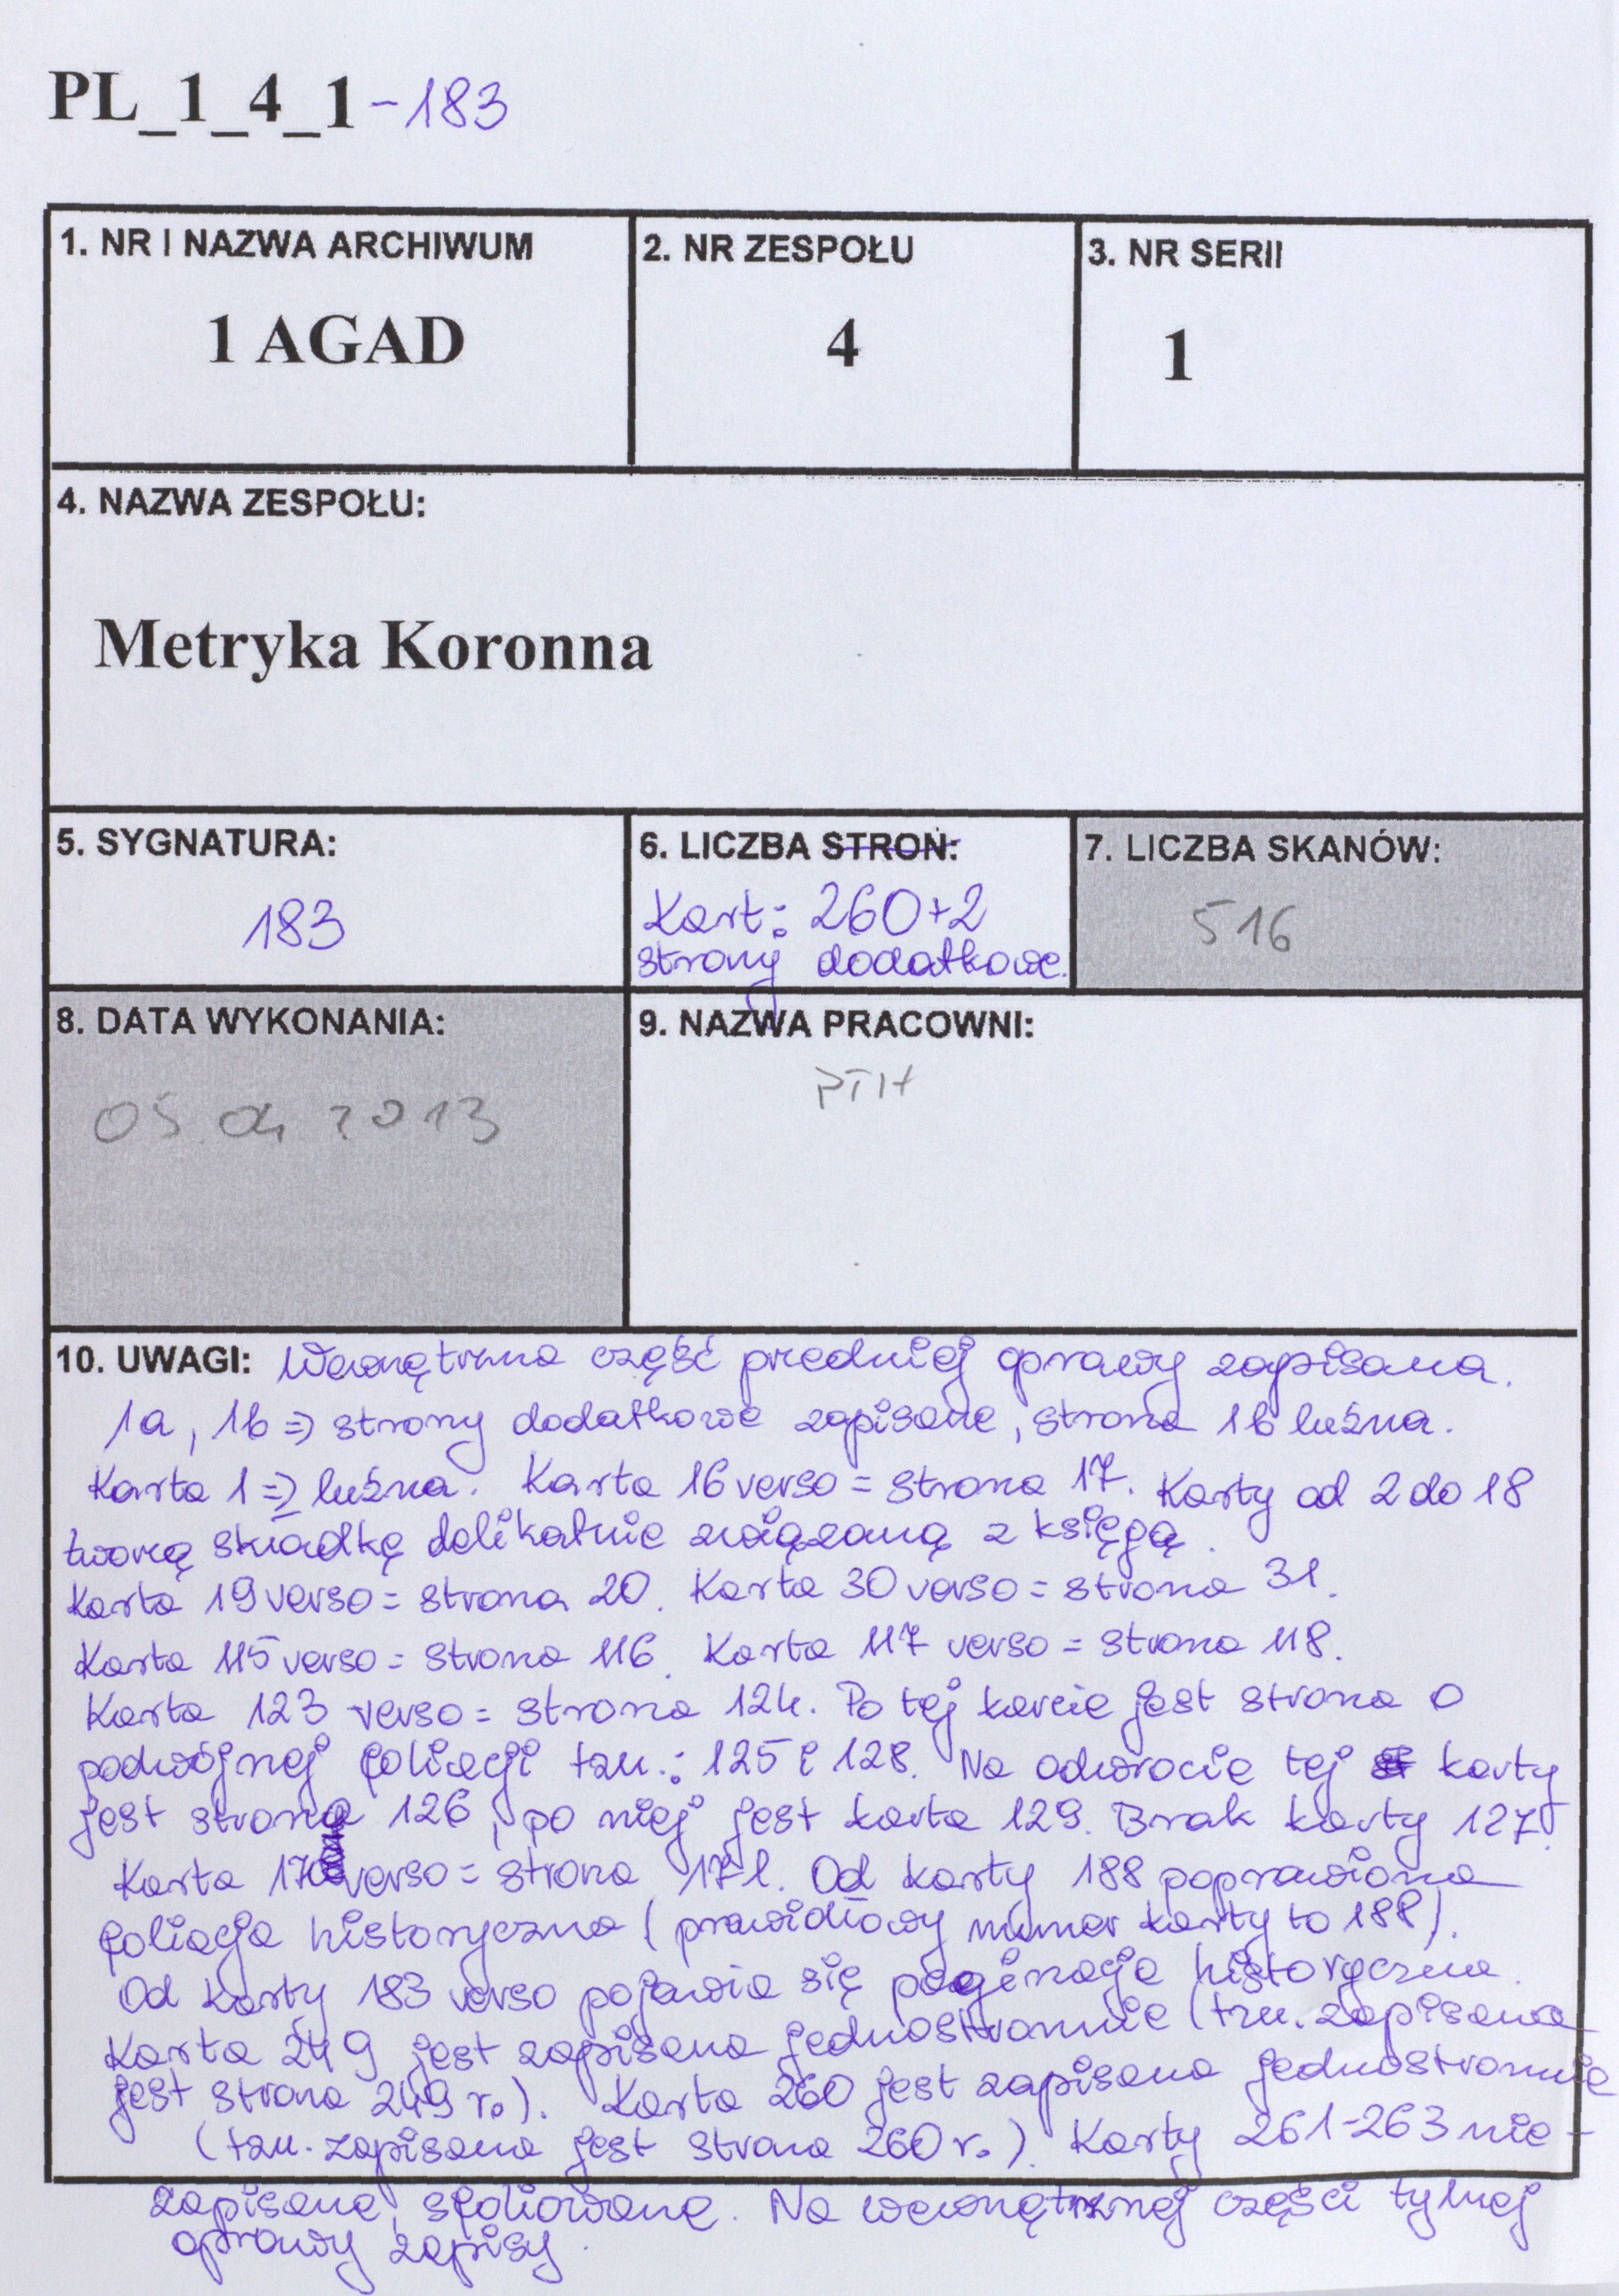 PL_1_4_1-183
1. NR I NAZWA ARCHIWUM
1 AGAD
2. NR ZESPOŁU
4
3. NR SERII
1
4. NAZWA ZESPOŁU:
Metryka Koronna
5. SYGNATURA:
183
6. LICZBA STRON:
Kart: 260+2
strony dodatkowe.
7. LICZBA SKANÓW:
516
8. DATA WYKONANIA:
05.04 2013
9. NAZWA PRACOWNI:
PTH
10. UWAGI: Wewnętrzna część przedniej oprawy zapisana.
1a, 1b => strony dodatkowe zapisane, strona 1b luźna.
Karta 1 => luźna. Karta 16 verso = strona 17. Karty od 2 do 18
tworzą składkę delikatnie związaną z księgą.
Karta 19 verso = strona 20. Karta 30 verso = strona 31.
Karta 115 verso = strona 116. Karta 117 verso = strona 118.
Karta 123 verso = strona 124. Po tej karcie jest strona o
podwójnej foliacji tzn.: 125 i 128. Na odwrocie tej karty
jest strona 126, po niej jest karta 129. Brak karty 127.
Karta 170 verso = strona 171. Od karty 188 poprawiona
foliacja historyczna (prawidłowy numer karty to 188).
Od karty 183 verso pojawia się paginacja historyczna.
Karta 249 jest zapisana jednostronnie (tzn. zapisana
jest strona 249 r.). Karta 260 jest zapisana jednostronnie
(tzn. zapisana jest strona 260 r.). Karty 261-263 nie-
zapisane, sfoliowane. Na wewnętrznej części tylnej
oprawy zapisy.